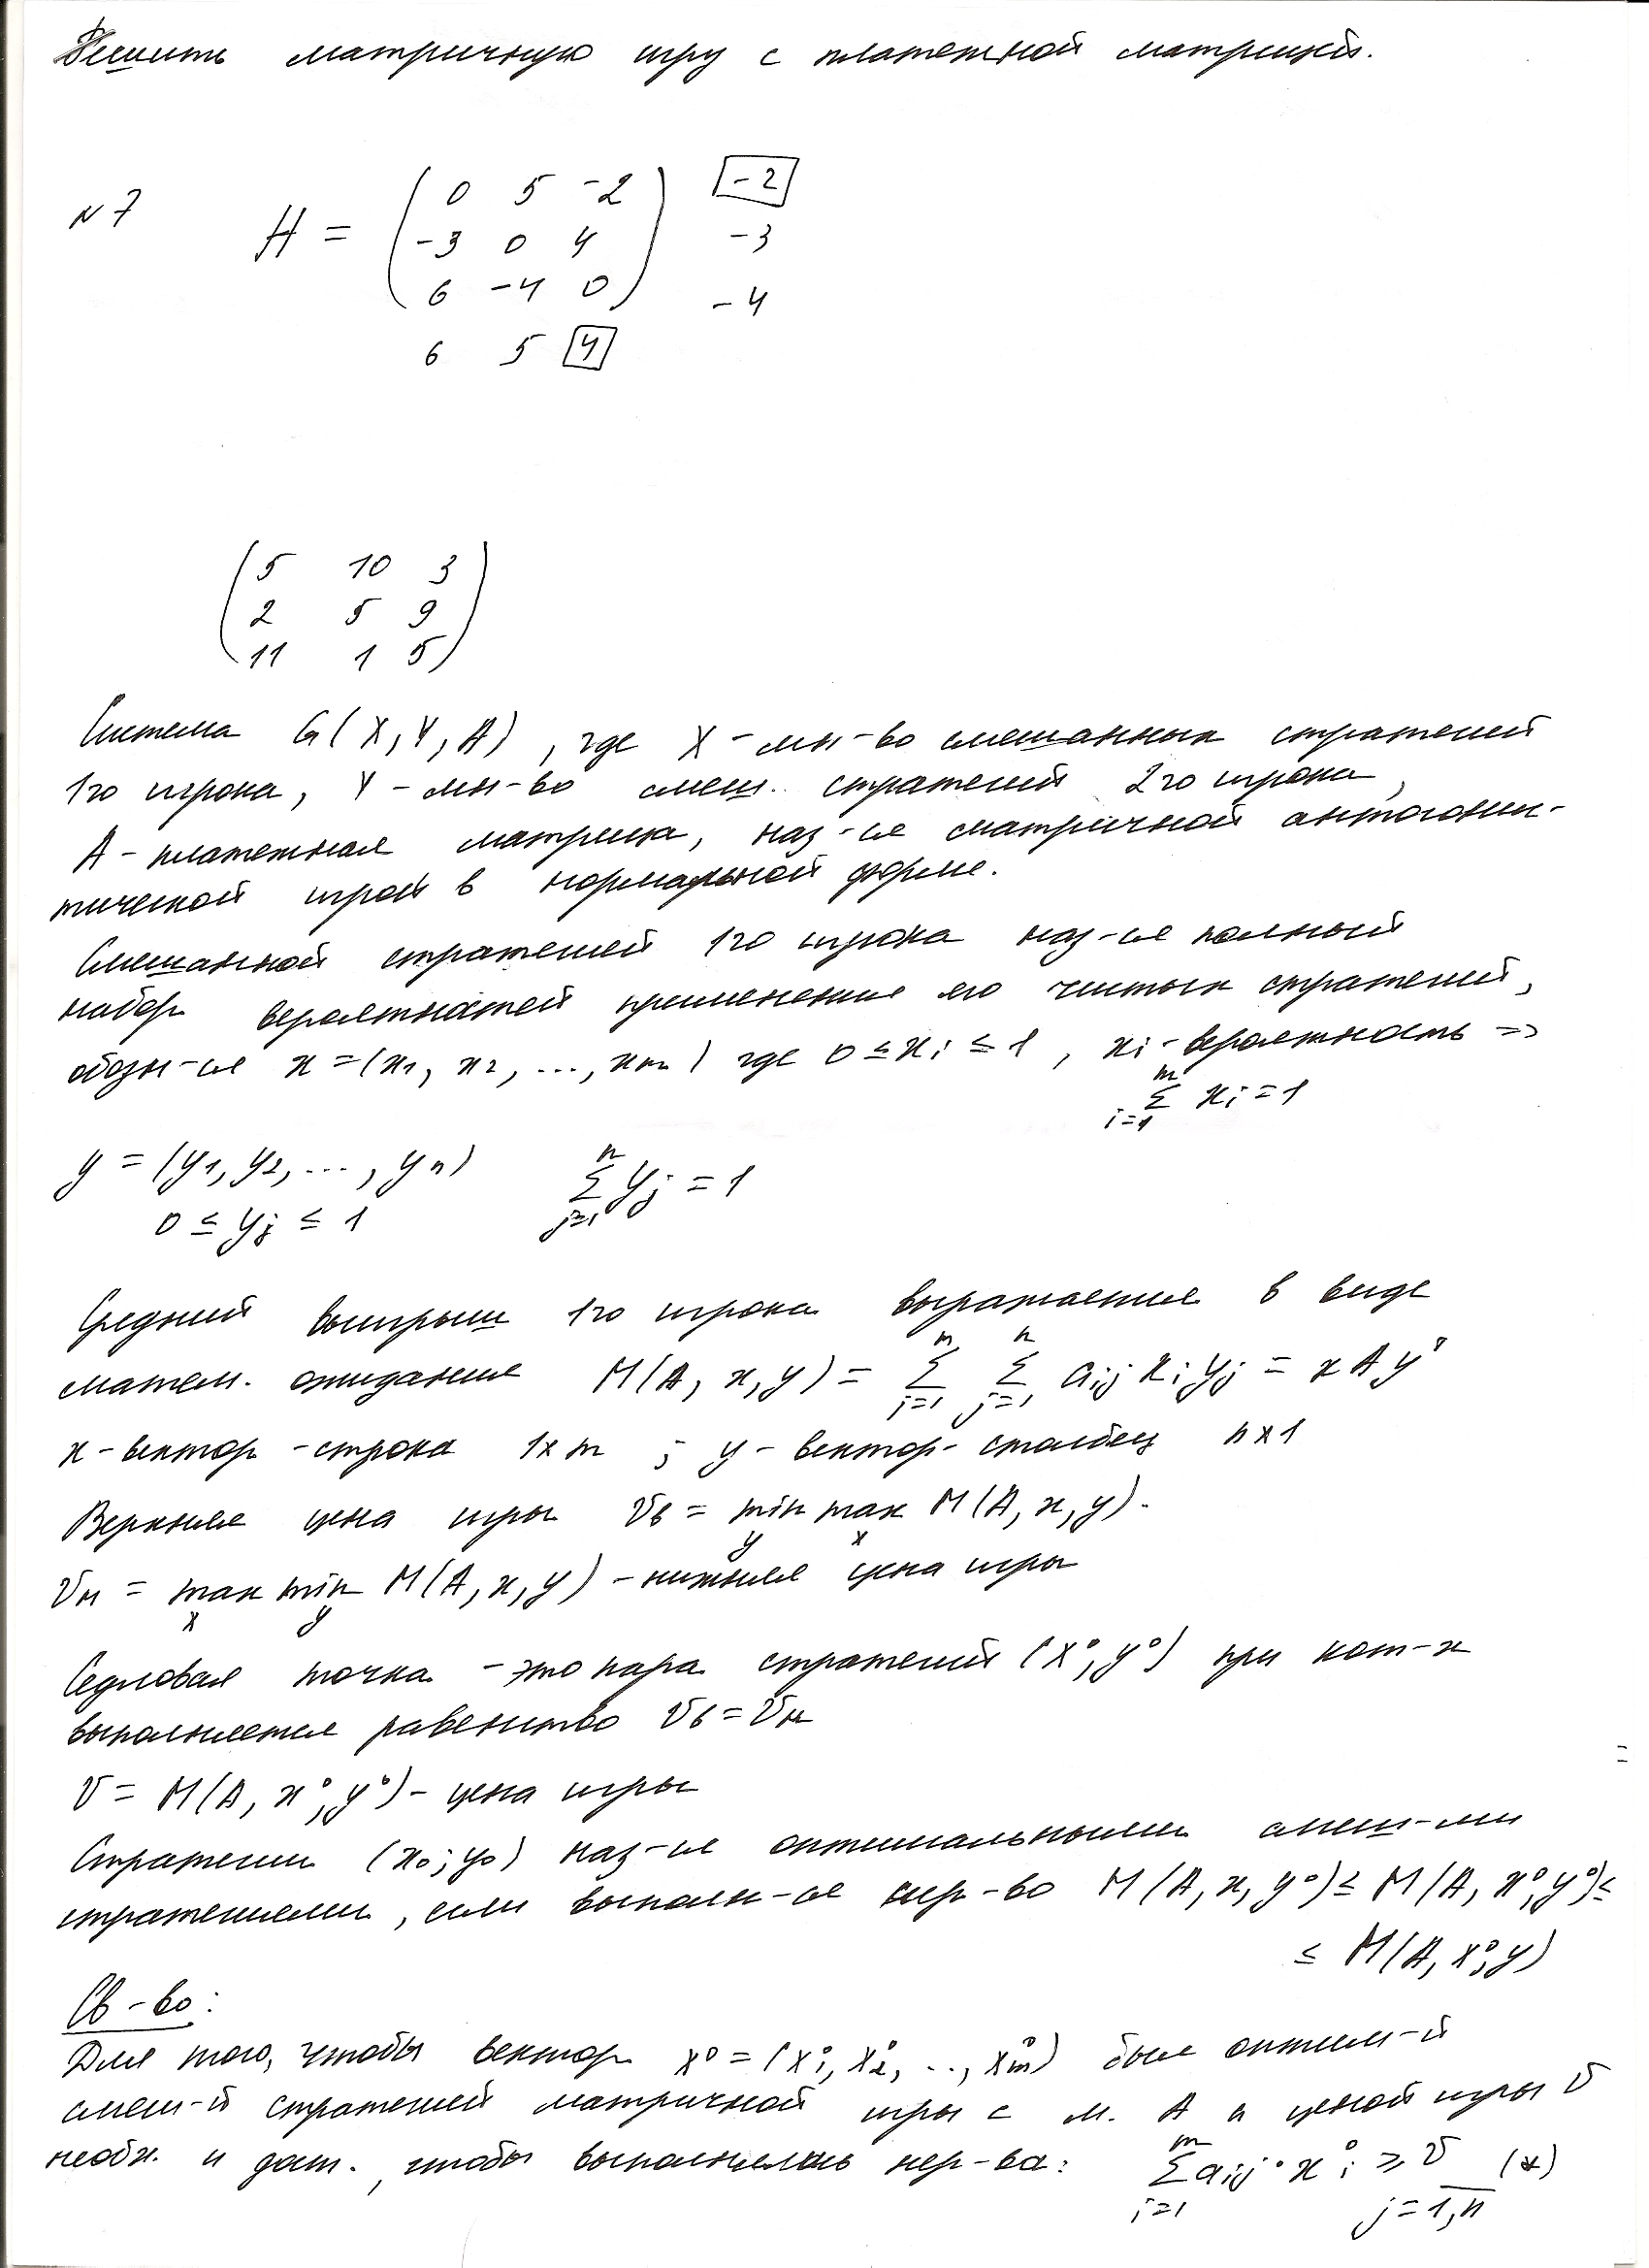 Решить матричную игру с платежной матрицей.
N 7 H = ( 0 5 -2 ) [-2]
( -3 0 4 ) -3
( 6 -4 0 ) -4
6 5 [4]
( 5 10 3 )
( 2 5 9 )
( 11 1 5 )
Система G(X, Y, A), где X - мн-во смешанных стратегий
1го игрока, Y - мн-во смеш. стратегий 2го игрока,
A - платежная матрица, наз-ся матричной антогонис-
тической игрой в нормальной форме.
Смешанной стратегией 1го игрока наз-ся полный
набор вероятностей применения его чистых стратегий,
обозн-ся x = (x1, x2, ..., xm) где 0 ≤ xi ≤ 1, xi - вероятность =>
m Σ i=1 xi = 1
y = (y1, y2, ..., yn) n Σ j=1 yj = 1
0 ≤ yj ≤ 1
Средний выигрыш 1го игрока выражается в виде
матем. ожидания M(A, x, y) = m Σ i=1 n Σ j=1 aij xi yj = x A y°
x - вектор - строка 1×m ; y - вектор - столбец n×1
Верхняя цена игры vв = min y max x M(A, x, y).
vн = max x min y M(A, x, y) - нижняя цена игры
Седловая точка - это пара стратегий (x°, y°) при кот-х
выполняется равенство vв = vн
v = M(A, x°, y°) - цена игры
Стратегии (x0; y0) наз-ся оптимальными смеш-ми
стратегиями, если выполн-ся нер-во M(A, x, y°) ≤ M(A, x°, y°) ≤
≤ M(A, x°, y)
Св-во:
Для того, чтобы вектор x° = (x°1, x°2, ..., x°m) был оптим-й
смеш-й стратегией матричной игры с м. A и ценой игры v
необх. и дост., чтобы выполнялись нер-ва: m Σ i=1 aij · x°i ≥ v (*)
j = 1,n